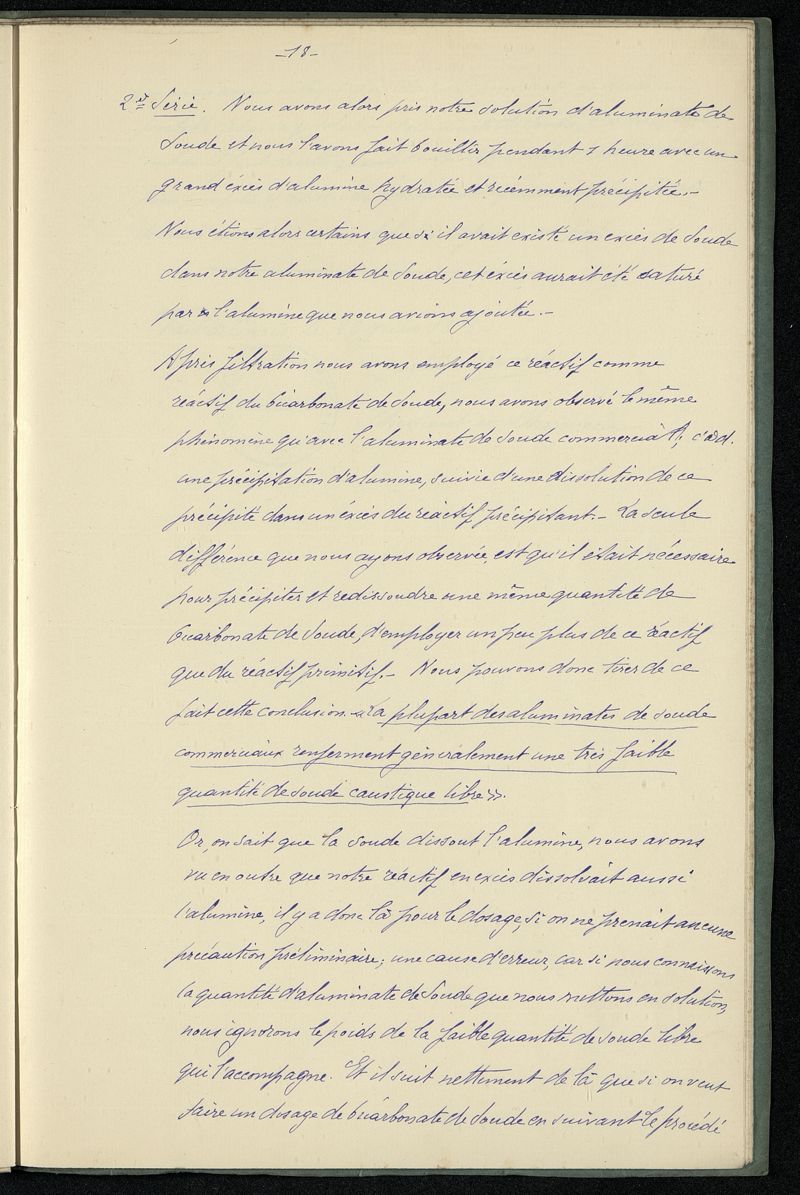 -18-
2e Série. Nous avons alors pris notre solution d'aluminate de
Soude et nous l'avons fait bouillir pendant 1 heure avec un
grand éxcès d'alumine hydratée et récemment précipitée.-
Nous étions alors certains que si il avait existé un excès de Soude
dans notre aluminate de Soude, cet éxcès aurait été saturé
par l'alumine que nous avions ajoutée.-
Après filtration nous avons employé ce réactif comme
réactif du bicarbonate de Soude, nous avons observé le même
phénomène qu'avec l'aluminate de soude commercial; c'àd.
une précipitation d'alumine, suivie d'une dissolution de ce
précipité dans un éxcès du réactif précipitant.- La seule
différence que nous ayons observée, est qu'il était nécessaire
pour précipiter et redissoudre une même quantité de
bicarbonate de Soude, d'employer un peu plus de ce réactif
que du réactif primitif.- Nous pouvons donc tirer de ce
fait cette conclusion "La plupart des aluminates de soude
commerciaux renferment généralement une très faible
quantité de soude caustique libre".
Or, on sait que la soude dissout l'alumine, nous avons
vu en outre que notre réactif en excès dissolvait aussi
l'alumine, il y a donc là pour le dosage, si on ne prenait aucune
précaution préliminaire; une cause d'erreur, car si nous connaissons
la quantité d'aluminate de Soude que nous mettons en solution,
nous ignorons le poids de la faible quantité de soude libre
qui l'accompagne. Et il suit nettement de là que si on veut
faire un dosage de bicarbonate de Soude en suivant le procédé